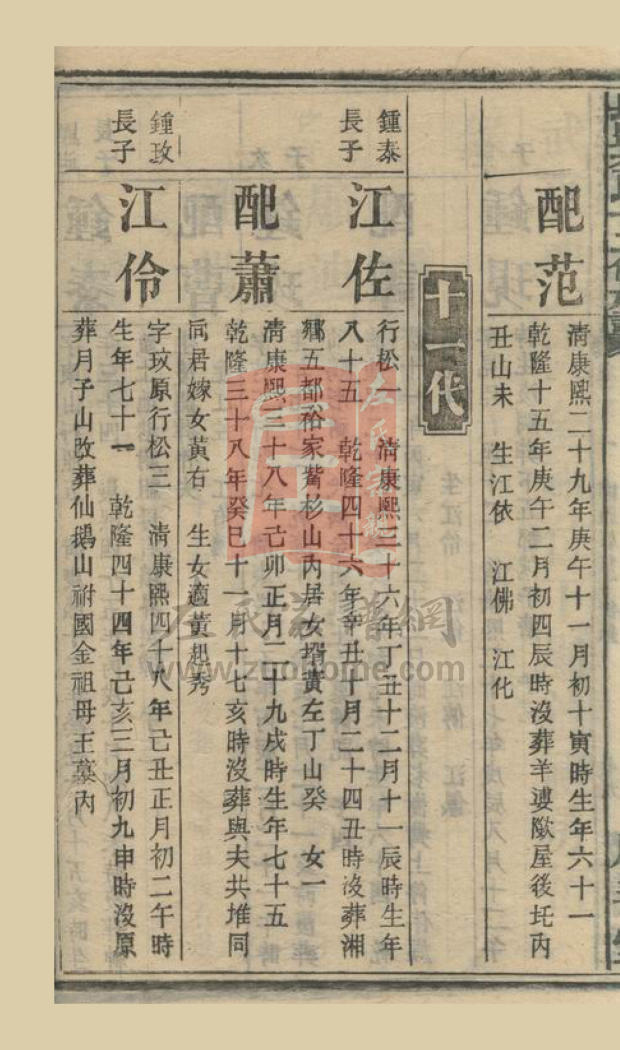 配范
清康熙二十九年庚午十一月初十寅時生年六十一
乾隆十五年庚午二月初四辰時沒葬羊婆歐屋後圫內
丑山未 生江依 江佛 江化
十一代
鍾泰
長子
江佐
行松一 清康熙三十六年丁丑十二月十一辰時生年
八十五 乾隆四十六年辛丑十月二十四丑時沒葬湘
鄉五都裕家觜杉山內居女壻黃左丁山癸 女一
配蕭
清康熙三十八年己卯正月二十九戌時生年七十五
乾隆三十八年癸巳十一月十七亥時沒葬與夫共堆同
向居嫁女黃右 生女適黃起秀
鍾玫
長子
江伶
字玟原行松三 清康熙四十八年己丑正月初二午時
生年七十一 乾隆四十四年己亥三月初九申時沒原
葬月子山改葬仙鵝山祔國金祖母王墓內
左氏宗譜網
www.zuohome.com